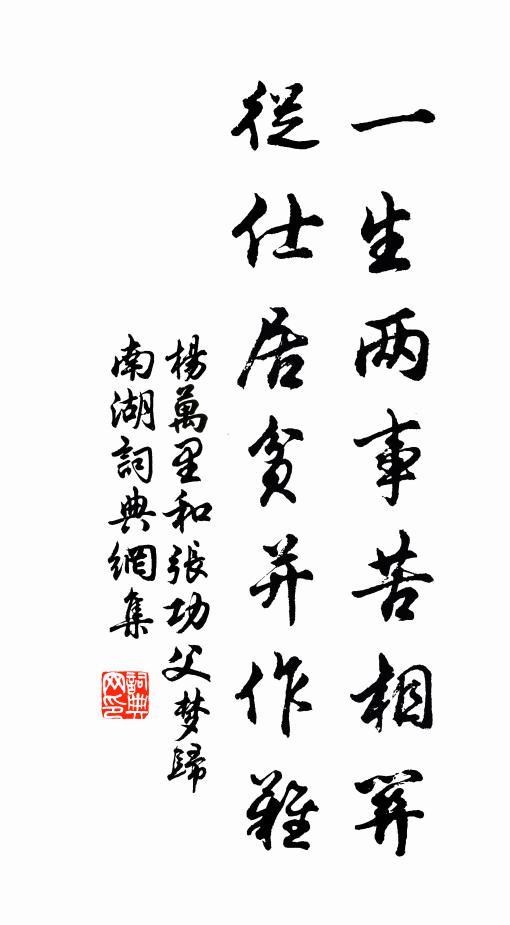 一生两事苦相關
從仕居貧并作難
楊萬里和張功父梦歸
南湖詞典網集
詞典网印